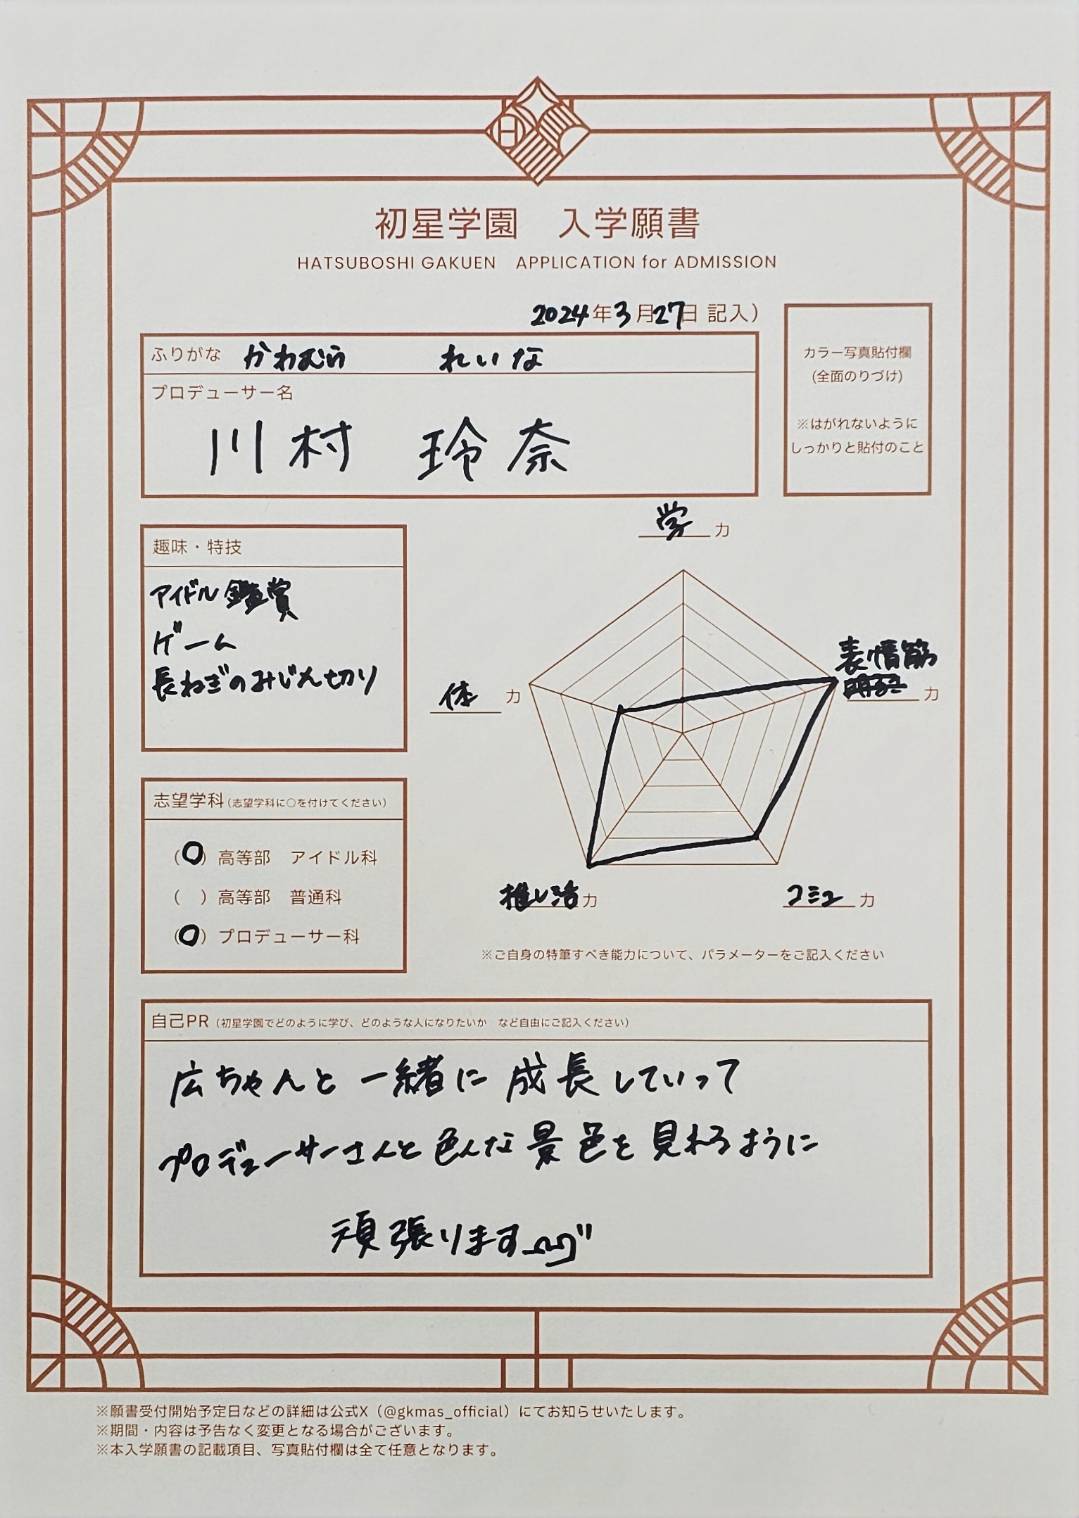 初星学園 入学願書
HATSUBOSHI GAKUEN APPLICATION for ADMISSION
2024年3月27日 記入)
ふりがな かわむら れいな
プロデューサー名
川村 玲奈
カラー写真貼付欄
(全面のりづけ)
※はがれないように
しっかりと貼付のこと
趣味・特技
アイドル鑑賞
ゲーム
長ねぎのみじん切り
学力
表情筋力
体力
推し活力
コミュ力
※ご自身の特筆すべき能力について、パラメーターをご記入ください
志望学科(志望学科に○を付けてください)
(○) 高等部 アイドル科
( ) 高等部 普通科
(○) プロデューサー科
自己PR(初星学園でどのように学び、どのような人になりたいか など自由にご記入ください)
広ちゃんと一緒に成長していって
プロデューサーさんと色んな景色を見れるように
頑張ります
※願書受付開始予定日などの詳細は公式X(@gkmas_official)にてお知らせいたします。
※期間・内容は予告なく変更となる場合がございます。
※本入学願書の記載項目、写真貼付欄は全て任意となります。